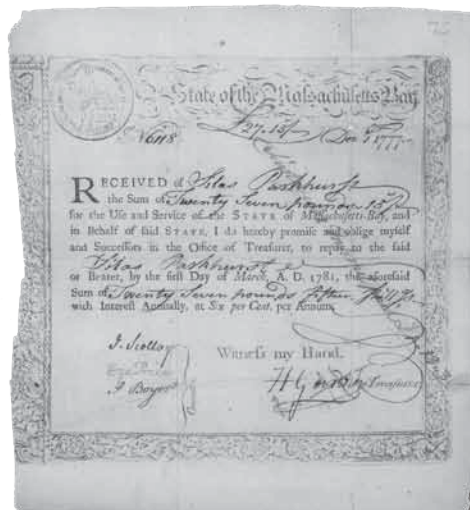 State of the Massachusetts Bay.
N 6118 £27.15/ Dec. 1, 1777
RECEIVED of Silas Parkhurst
the Sum of Twenty Seven pounds 15/
for the Use and Service of the STATE of Massachusetts-Bay, and
in Behalf of said STATE, I do hereby promise and oblige myself
and Successors in the Office of Treasurer, to repay to the said
Silas Parkhurst
or Bearer, by the first Day of March, A. D. 1781, the aforesaid
Sum of Twenty Seven pounds fifteen
with Interest Annually, at Six per Cent. per Annum.
J. Scollay
Witness my Hand.
J Boyer
H Gardner Treasurer